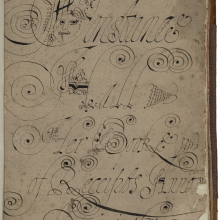 Constance
Hall
Her Book
of Receipts Anno